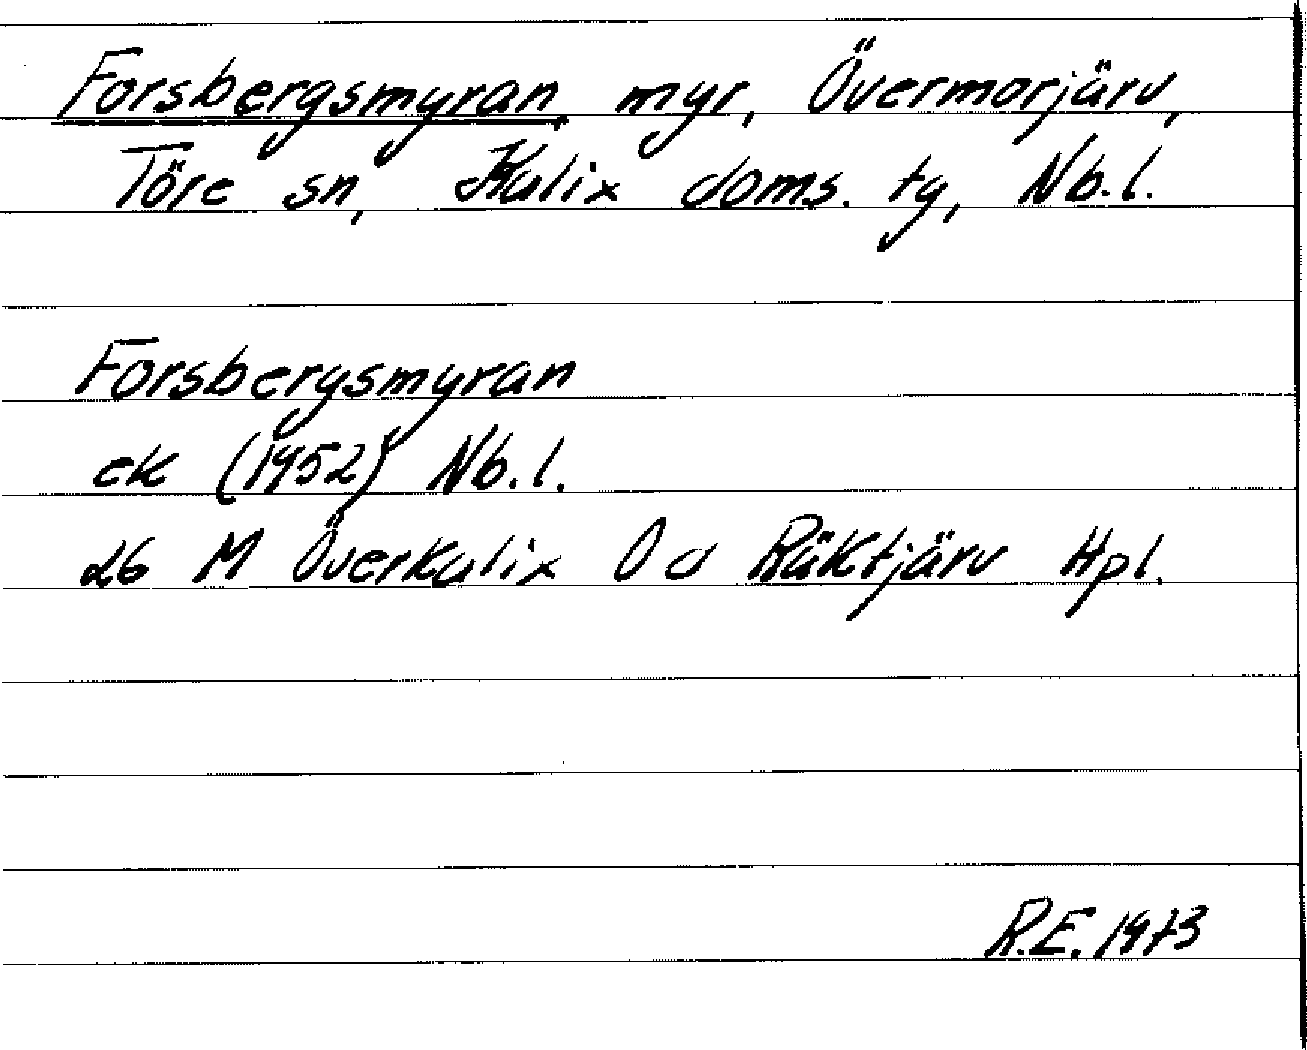 Forsbergsmyran, myr, Övermorjärv,
Töre sn, Kalix doms. tg, Nb.l.
Forsbergsmyran
ek (1952) Nb.l.
26 M Överkalix O d Räktjärv Hpl.
R.E. 1973